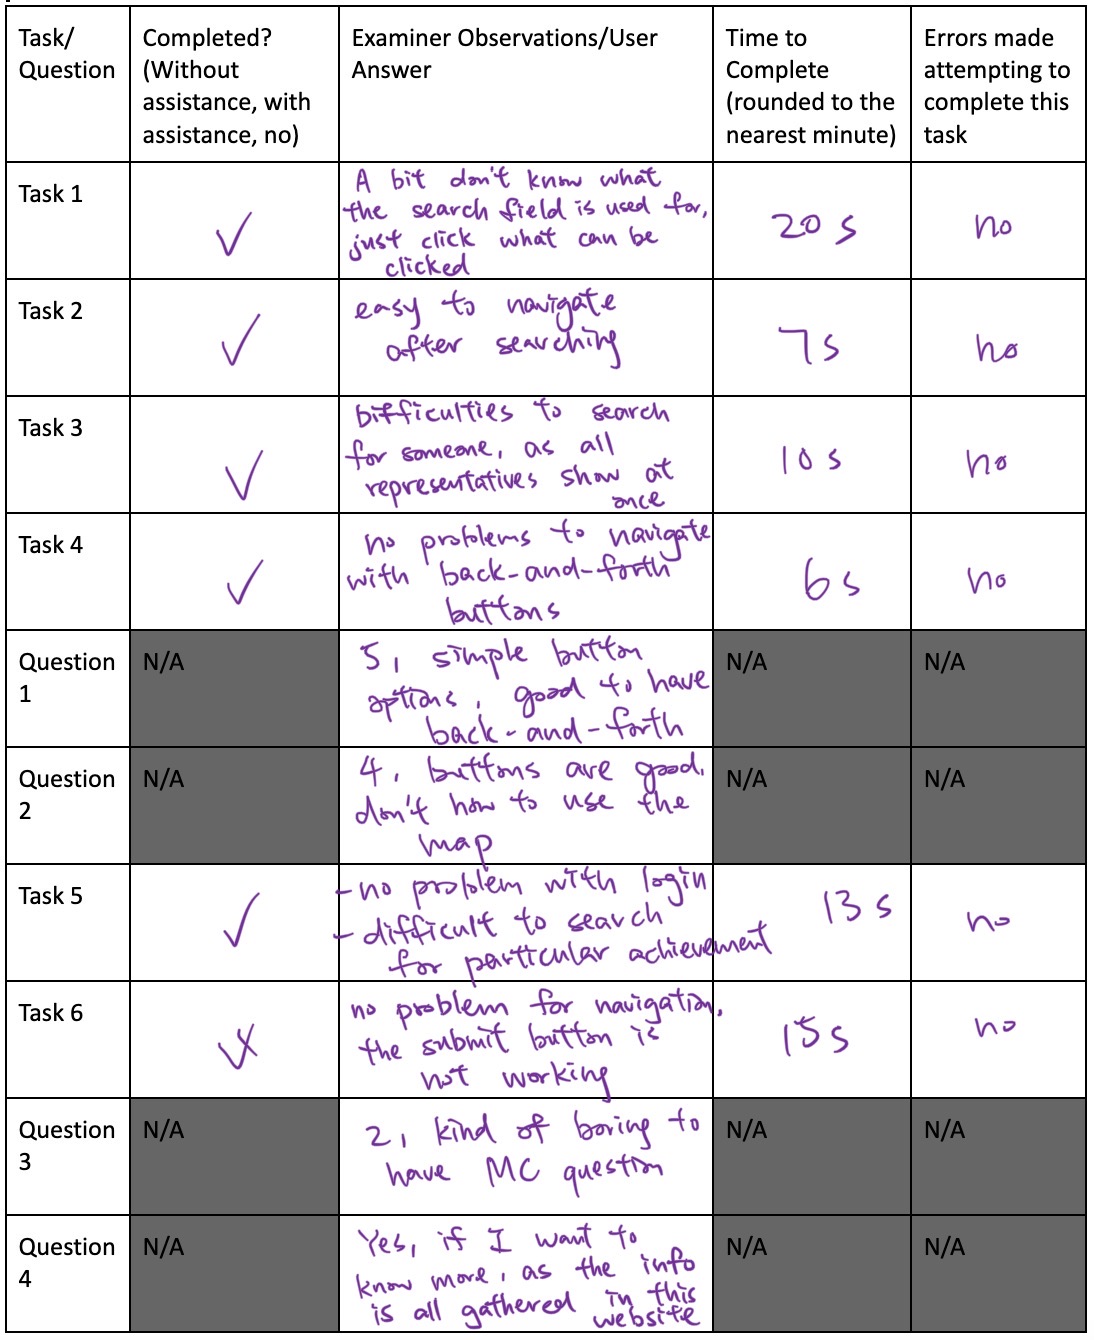 Task/
Question
Completed?
(Without
assistance, with
assistance, no)
Examiner Observations/User
Answer
Time to
Complete
(rounded to the
nearest minute)
Errors made
attempting to
complete this
task
Task 1
✓
A bit don't know what
the search field is used for,
just click what can be
clicked
20 s
no
Task 2
✓
easy to navigate
after searching
7 s
no
Task 3
✓
Difficulties to search
for someone, as all
representatives show at
once
10 s
no
Task 4
✓
no problems to navigate
with back-and-forth
buttons
6 s
no
Question
1
N/A
5, simple button
options, good to have
back-and-forth
N/A
N/A
Question
2
N/A
4, buttons are good,
don't how to use the
map
N/A
N/A
Task 5
✓
- no problem with login
- difficult to search
for particular achievement
13 s
no
Task 6
no problem for navigation,
the submit button is
not working
15 s
no
Question
3
N/A
2, kind of boring to
have MC question
N/A
N/A
Question
4
N/A
Yes, if I want to
know more, as the info
is all gathered in this
website
N/A
N/A